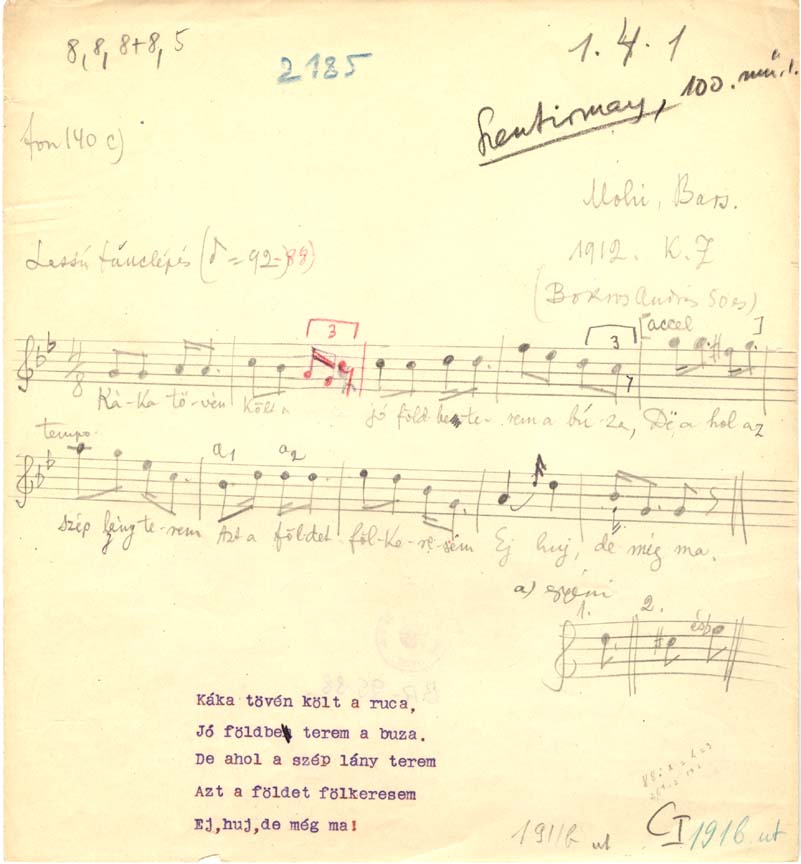 8, 8, 8+8, 5
2185
1.4.1
Szentirmay, 100. mű. 1.
fon 140 c)
Mohi, Bars.
1912. K. Z
Lassú tánclépés (♪ = 92-88)
(Bokros András 50 es)
3
3
[accel ]
4/8
Ká-ka tö-vén költ a jó föld-be te-rem a bú-za, De a hol az
tempo
a1 a2
szép lány te-rem Azt a föl-det föl-ke-re-sém Ej huj, de még ma.
a) egyéni
1. 2.
és
Káka tövén költ a ruca,
Jó földbe terem a buza.
De ahol a szép lány terem
Azt a földet fölkeresem
Ej,huj,de még ma!
1911b ut
CI 1916 ut